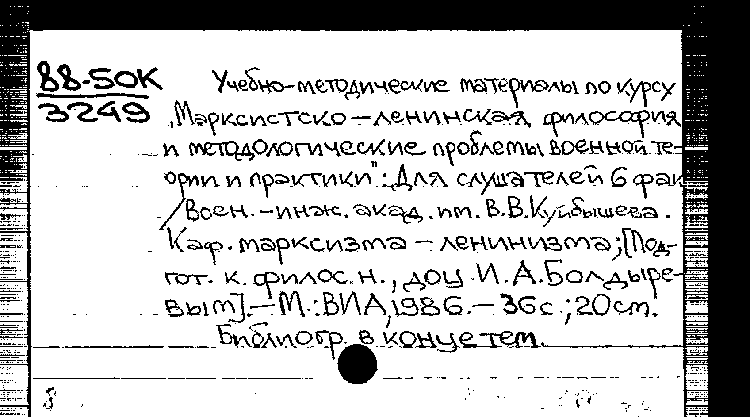 88-50К
3249
Учебно-методические материалы по курсу
„Марксистско-ленинская философия
и методологические проблемы военной те-
ории и практики": Для слушателей 6 фак
/Воен.-инж. акад. им. В.В.Куйбышева.
Каф. марксизма-ленинизма; [Под-
гот. к. филос. н., доц. И.А.Болдыре-
вым]. - М.: ВИА, 1986. - 36с.; 20см.
Библиогр. в конце тем.
8